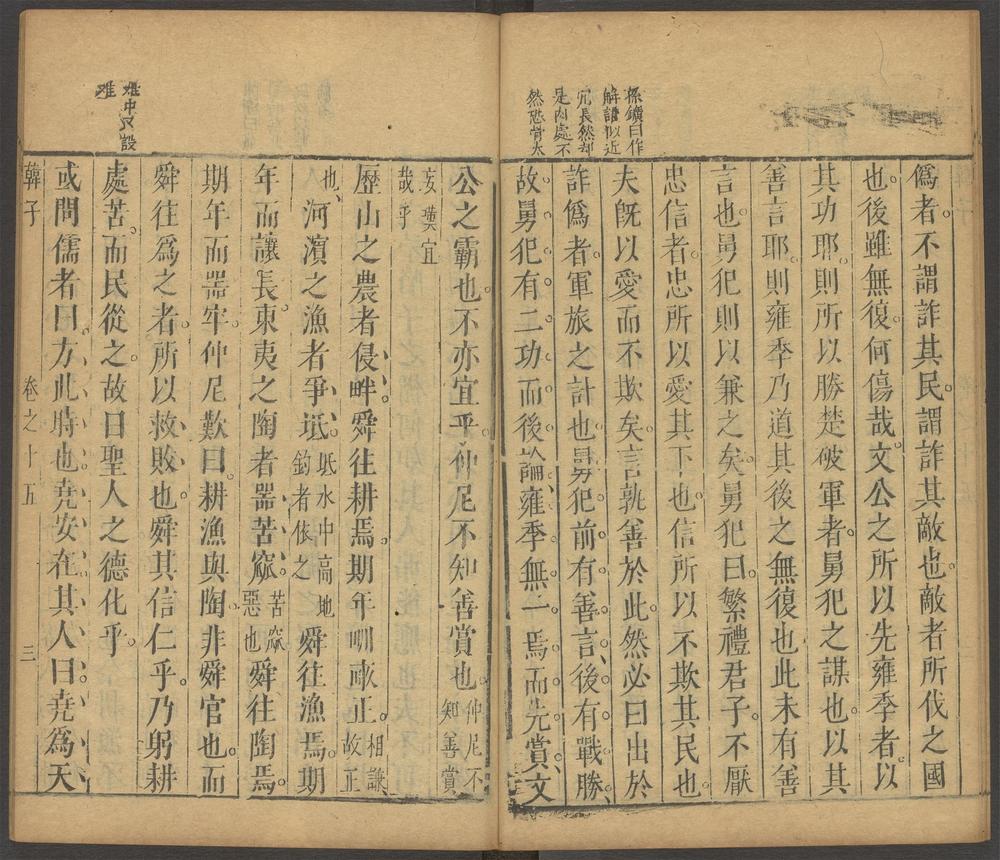 孫鑛曰作
解語似近
冗長然却
是肉處不
然恐骨太
偽者。不謂詐其民。謂詐其敵也。敵者所伐之國
也。後雖無復。何傷哉。文公之所以先雍季者。以
其功耶。則所以勝楚破軍者。舅犯之謀也。以其
善言耶。則雍季乃道其後之無復也。此未有善
言也。舅犯則以兼之矣。舅犯曰。繁禮君子。不厭
忠信者。忠所以愛其下也。信所以不欺其民也。
夫既以愛而不欺矣。言孰善於此。然必曰出於
詐偽者。軍旅之計也。舅犯前有善言、後有戰勝、
故舅犯有二功而後論、雍季無一焉而先賞、文
公之霸也。不亦宜乎。仲尼不知善賞也。仲尼不知善賞
妄嘆宜哉乎
歷山之農者侵畔。舜往耕焉。期年甽畝正。相謙故正
也、河濱之漁者爭坻。坻水中高地釣者依之舜往漁焉。期
年而讓長。東夷之陶者器苦窳。苦窳惡也舜往陶焉。
期年而器牢。仲尼歎曰。耕漁與陶。非舜官也。而
舜往為之者。所以救敗也。舜其信仁乎。乃躬耕
處苦。而民從之。故曰聖人之德化乎。
或問儒者曰。方此時也。堯安在。其人曰。堯為天
難中又設
難
韓子 卷之十五 三